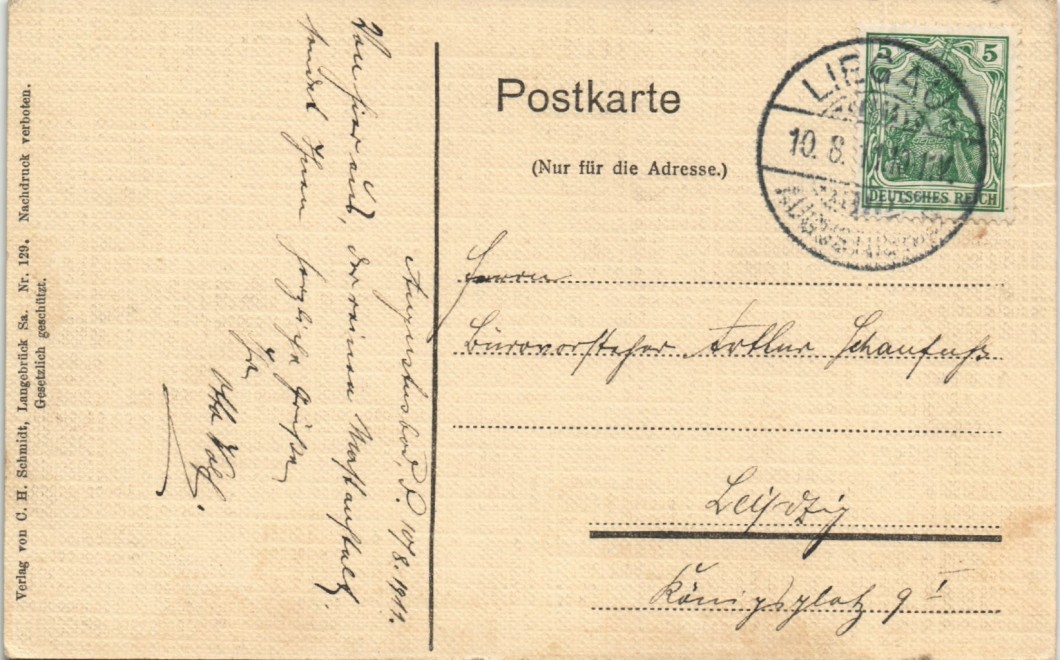 Verlag von C. H. Schmidt, Langebrück Sa. Nr. 129. Nachdruck verboten.
Gesetzlich geschützt.
Augustusbad, d. 10/8. 1911.
Von hier aus, der reinen Mastanstalt,
sendet Ihnen herzliche Grüße
Ihr
Otto
Postkarte
(Nur für die Adresse.)
5 5
DEUTSCHES REICH
LIEGAU
10. 8. 11
AUGUSTUSBAD
Herrn
Bürovorsteher Arthur Schaufuß
Leipzig
Königsplatz 9 I